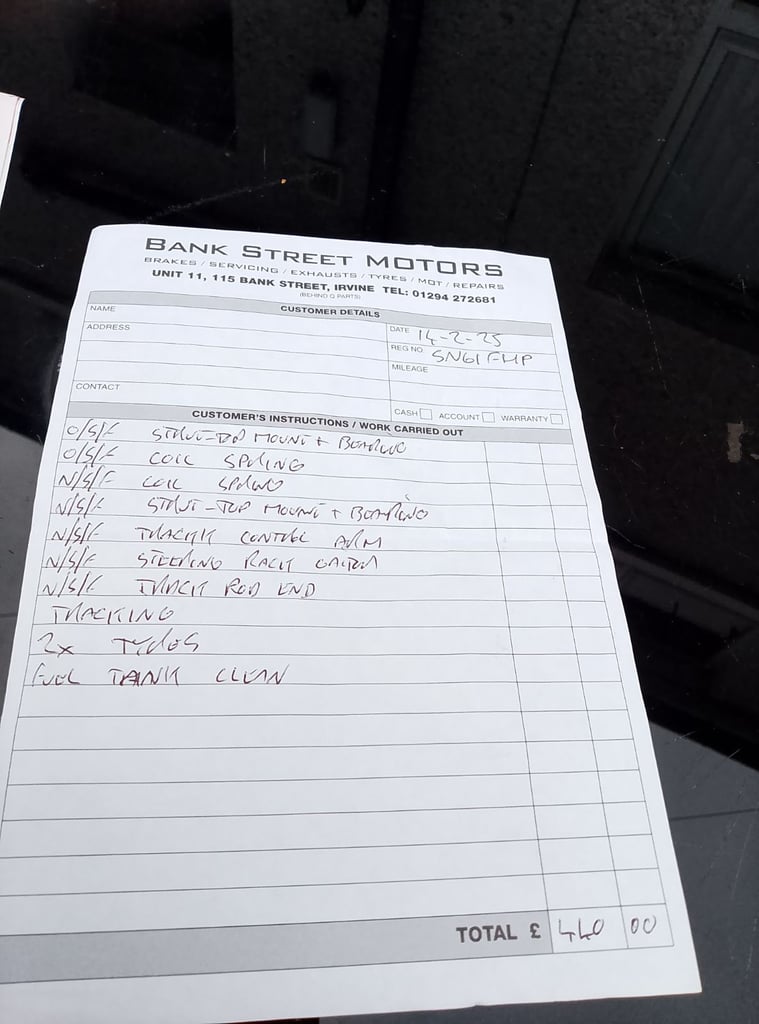 BANK STREET MOTORS
BRAKES / SERVICING / EXHAUSTS / TYRES / MOT / REPAIRS
UNIT 11, 115 BANK STREET, IRVINE TEL: 01294 272681
(BEHIND Q PARTS)
CUSTOMER DETAILS
NAME
ADDRESS
DATE 14-2-25
REG NO. SN61 FHP
MILEAGE
CONTACT
CASH ACCOUNT WARRANTY
CUSTOMER'S INSTRUCTIONS / WORK CARRIED OUT
O/S/F STRUT-TOP MOUNT + BEARING
O/S/F COIL SPRING
N/S/F COIL SPRING
N/S/F STRUT-TOP MOUNT + BEARING
N/S/F TRACK CONTROL ARM
N/S/F STEERING RACK GAITOR
N/S/F TRACK ROD END
TRACKING
2x TYRES
FUEL TANK CLEAN
TOTAL £ 440 00